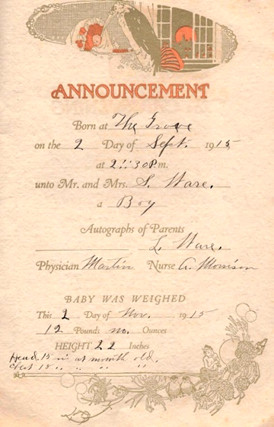 ANNOUNCEMENT
Born at The Grove
on the 2 Day of Sept. 1915
at 2:30 P.m.
unto Mr. and Mrs. S. Ware.
a Boy
Autographs of Parents
L. Ware.
Physician Martin Nurse A. Morrison
BABY WAS WEIGHED
This 2 Day of Nov. 1915
12 Pounds no. Ounces
HEIGHT 22 Inches
Head 15 in at month old.
Chest 15 " " " "